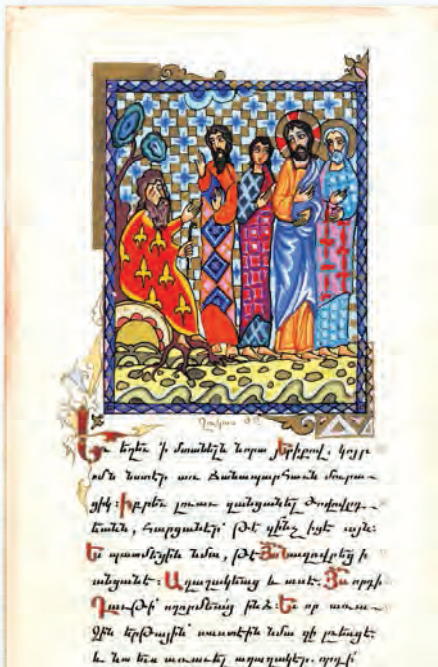 Ղուկաս ԺԸ
Եւ եղեւ ՚ի մտանելն նորա յԵրիքով. կոյր
ոմն նստէր առ ճանապարհաւն մուրա-
ցիկ։ Իբրեւ լուաւ զանցանել ժողովրդ-
եանն, հարցանէր՝ թէ զինչ իցէ այն։
Եւ պատմեցին նմա, թէ Յս նազովրեցի
անցանէ։ Աղաղակեաց և ասէ. Յս որդի
Դաւթի՝ ողորմեաց ինձ։ Եւ որ առա-
ջին երթային՝ սաստէին նմա զի լռեսցէ.
և նա ևս առաւել աղաղակէր. որդի՛